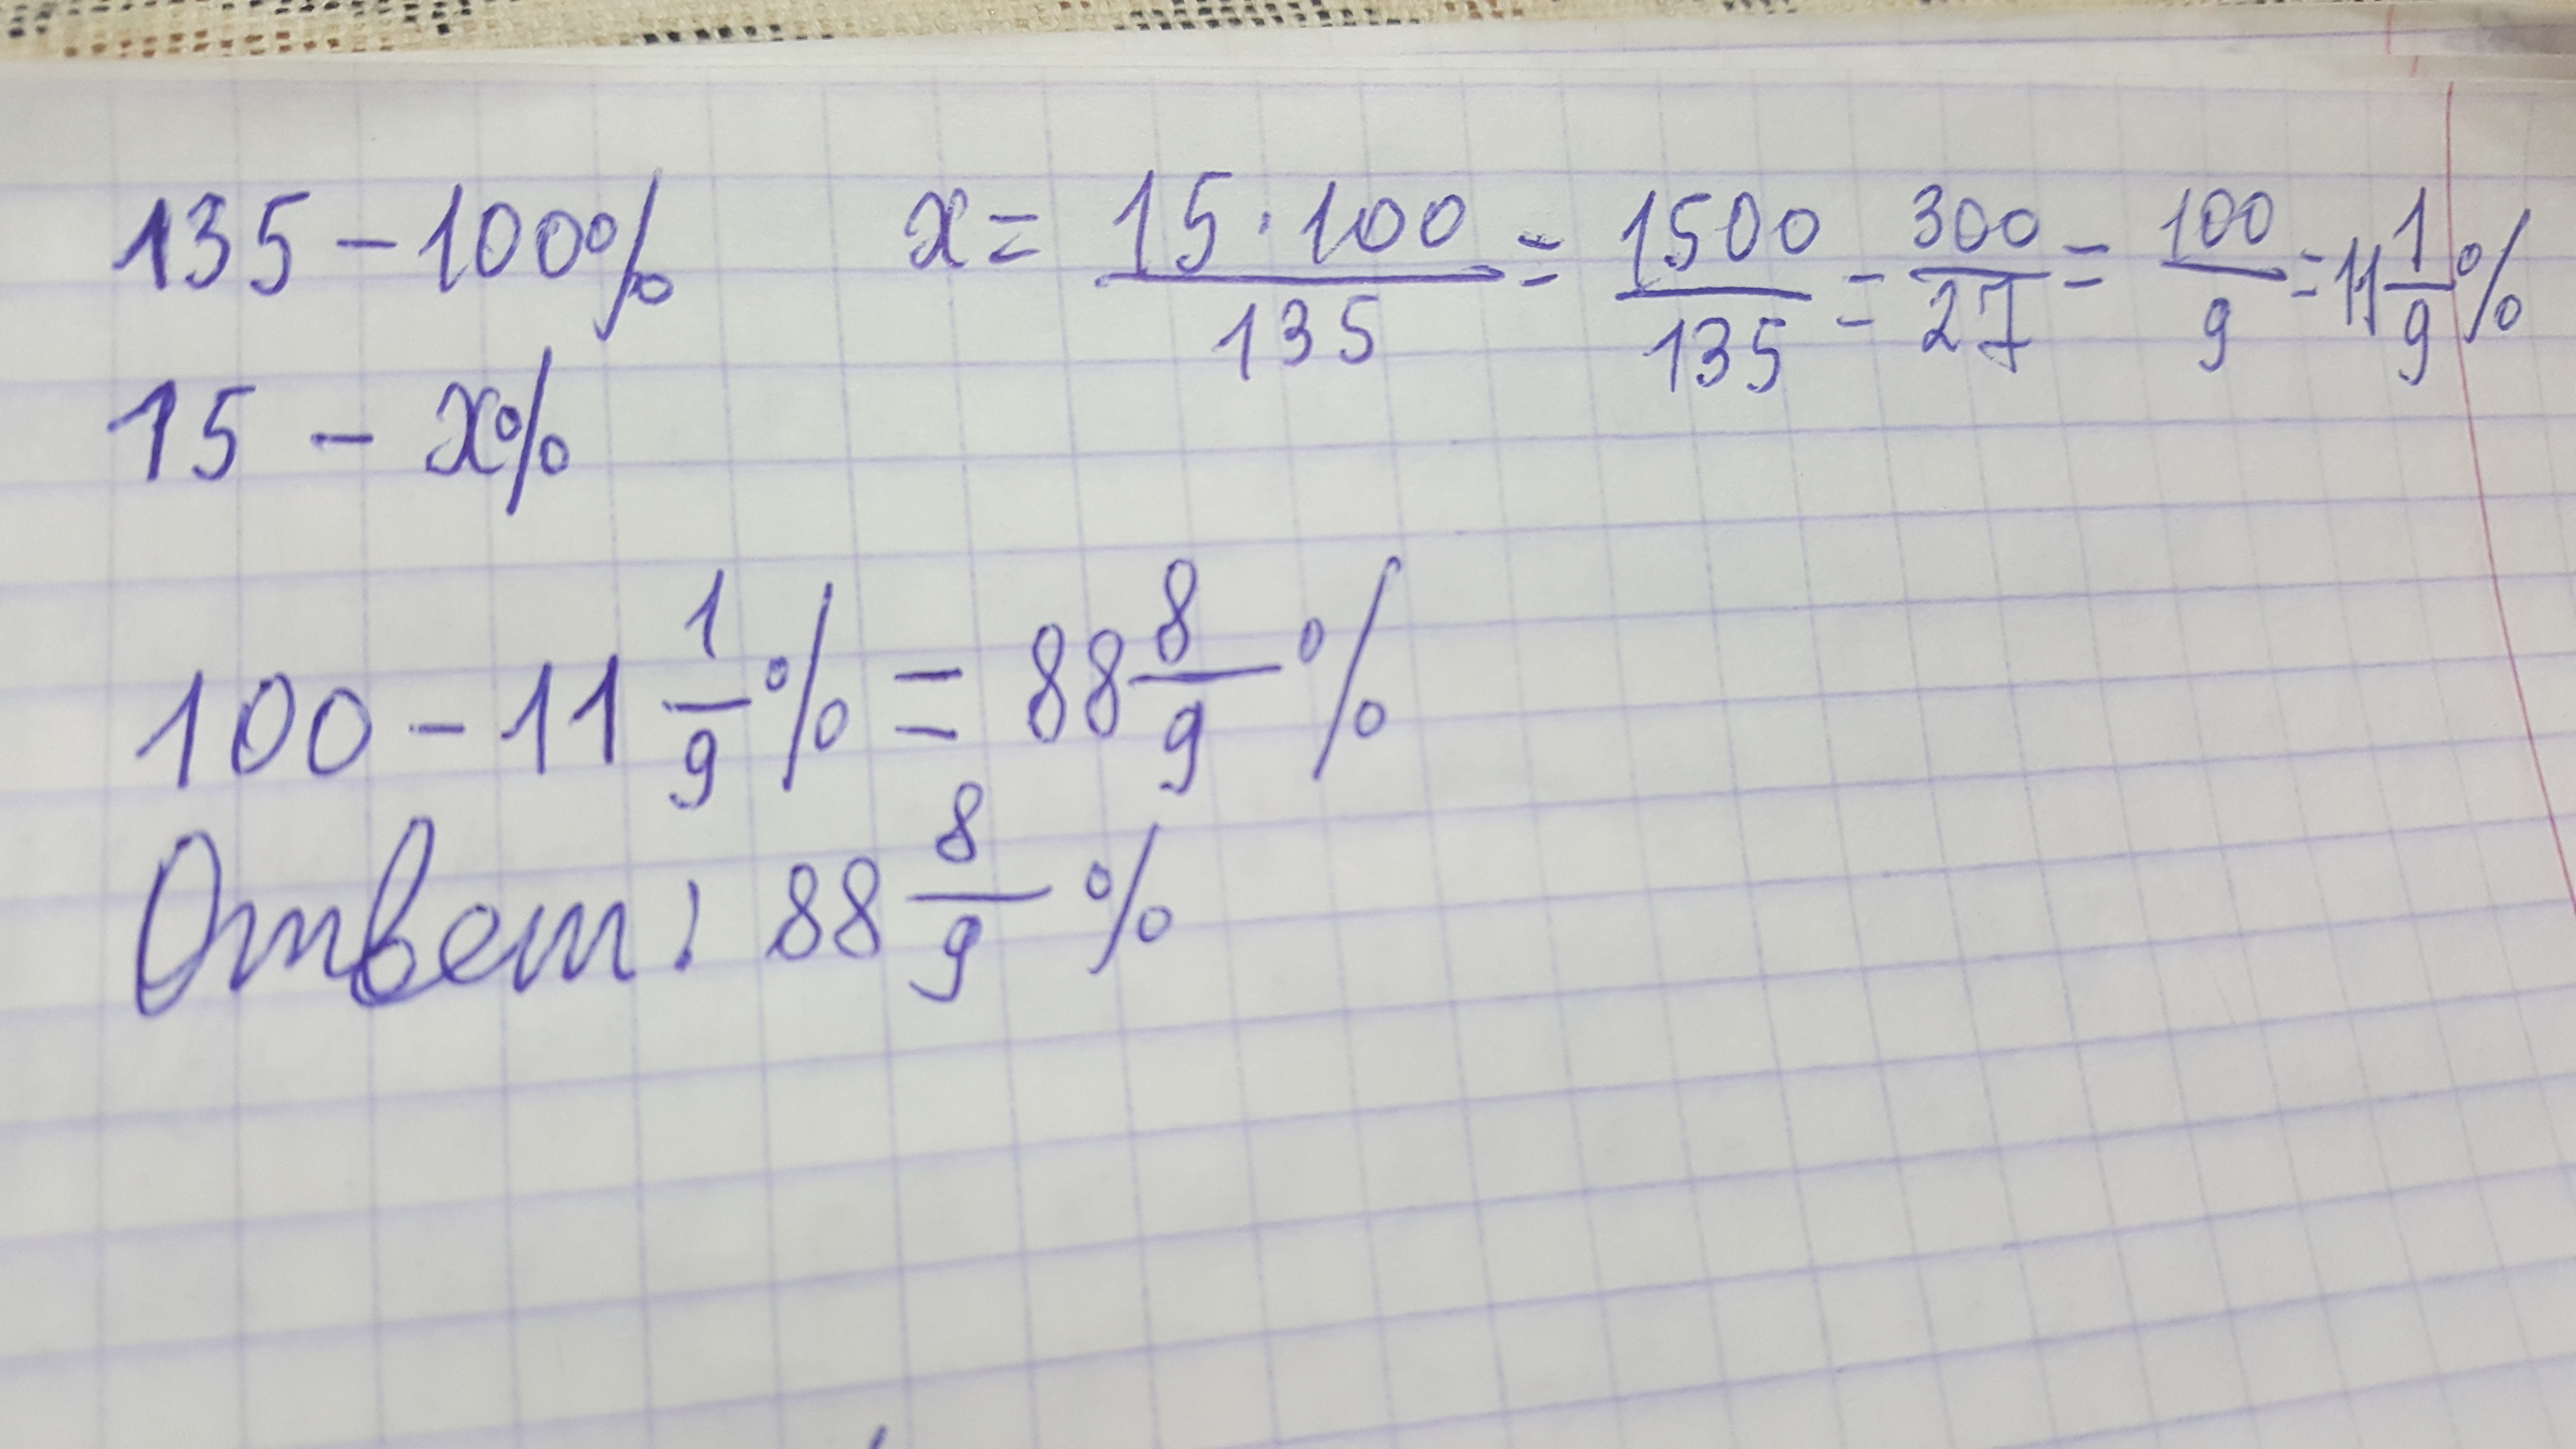 135 - 100% x = 15 · 100 / 135 = 1500 / 135 = 300 / 27 = 100 / 9 = 11 1/9 %
15 - x%
100 - 11 1/9 % = 88 8/9 %
Ответ: 88 8/9 %